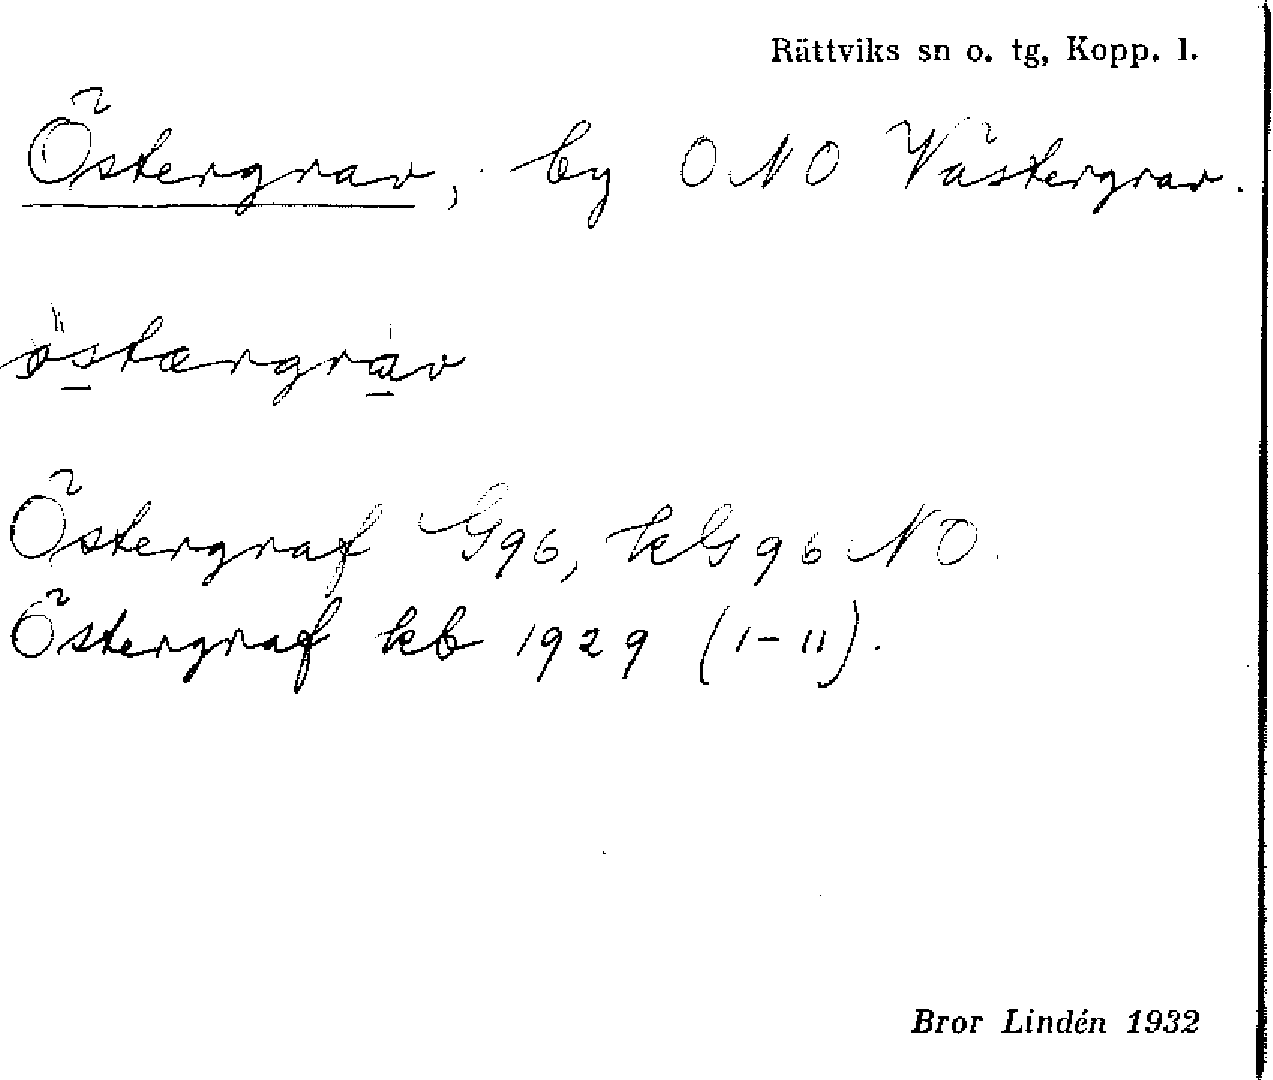 Rättviks sn o. tg, Kopp. l.
Östergrav, by ONO Västergrav.
östærgrav
Östergraf G96, kG96 NO.
Östergraf kb 1929 (1-11).
Bror Lindén 1932